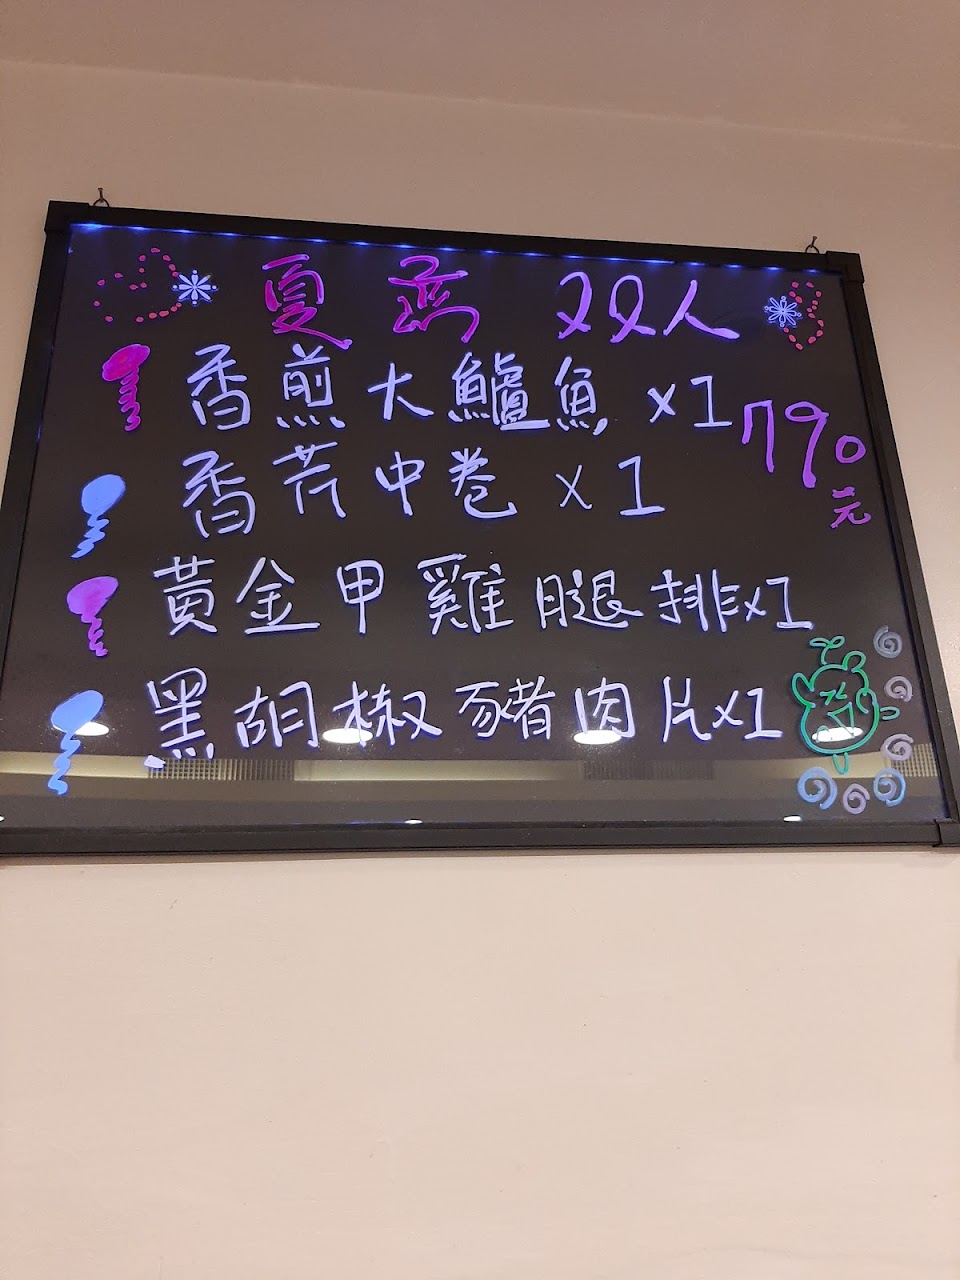 夏 双人
香煎大鱸魚 x1
790
元
香芹中卷 x1
黃金甲雞腿排x1
黑胡椒豬肉片x1